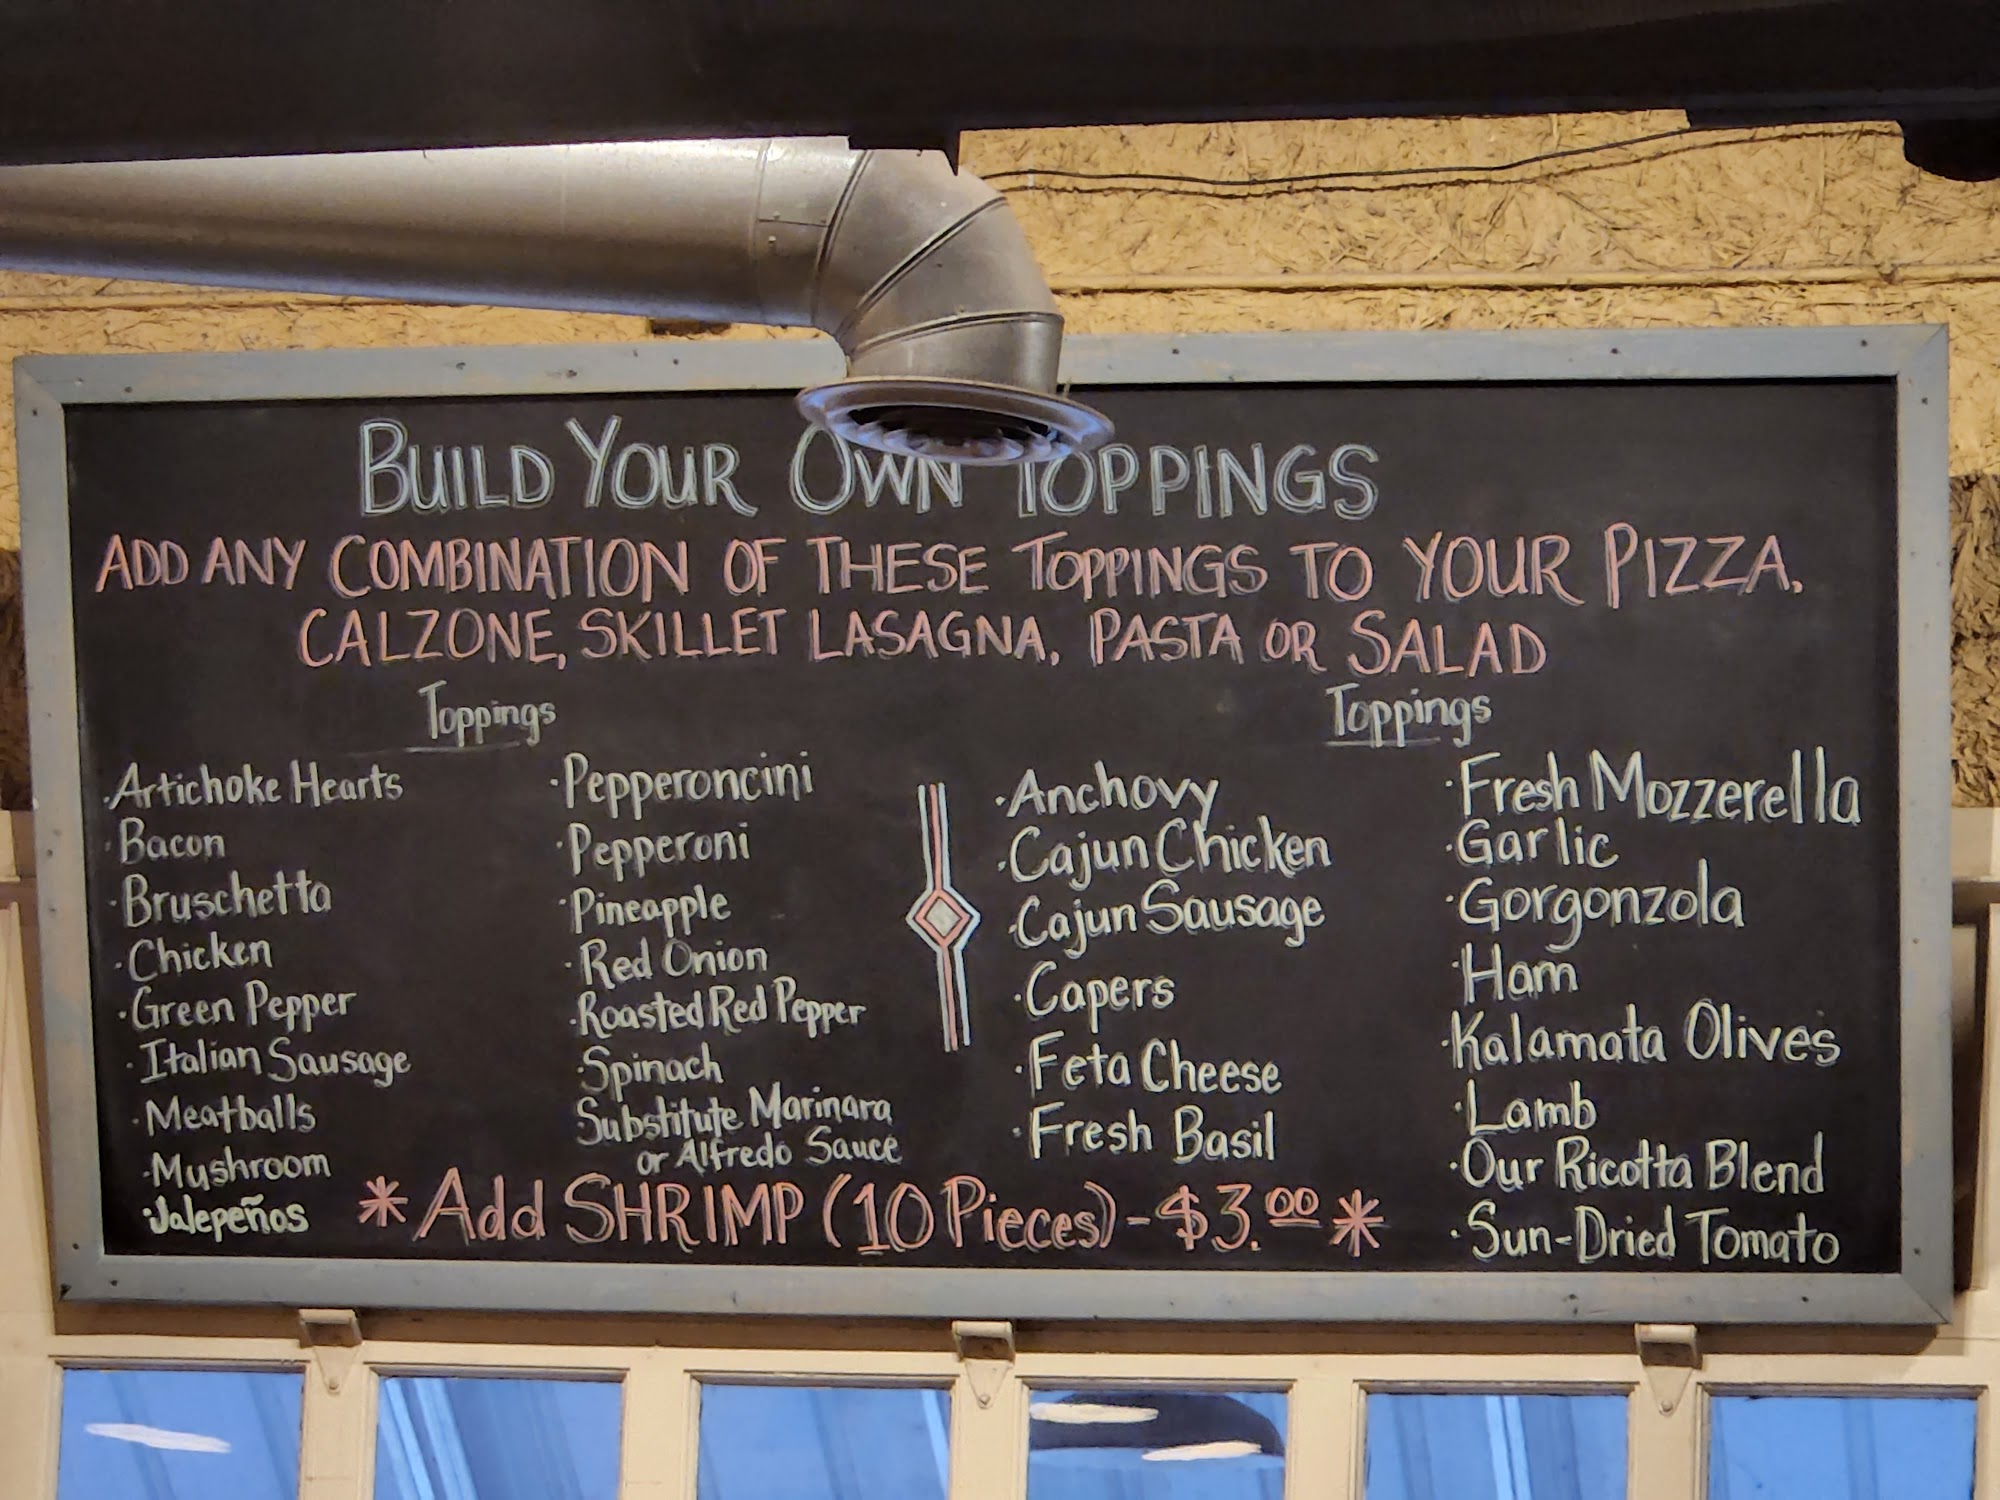 BUILD YOUR OWN TOPPINGS
ADD ANY COMBINATION OF THESE TOPPINGS TO YOUR PIZZA,
CALZONE, SKILLET LASAGNA, PASTA OR SALAD
Toppings
· Artichoke Hearts
· Bacon
· Bruschetta
· Chicken
· Green Pepper
· Italian Sausage
· Meatballs
· Mushroom
· Jalepeños
· Pepperoncini
· Pepperoni
· Pineapple
· Red Onion
· Roasted Red Pepper
· Spinach
Substitute Marinara
or Alfredo Sauce
Toppings
· Anchovy
· Cajun Chicken
· Cajun Sausage
· Capers
· Feta Cheese
· Fresh Basil
· Fresh Mozzerella
· Garlic
· Gorgonzola
· Ham
· Kalamata Olives
· Lamb
· Our Ricotta Blend
· Sun-Dried Tomato
* Add SHRIMP (10 Pieces) - $3.00 *